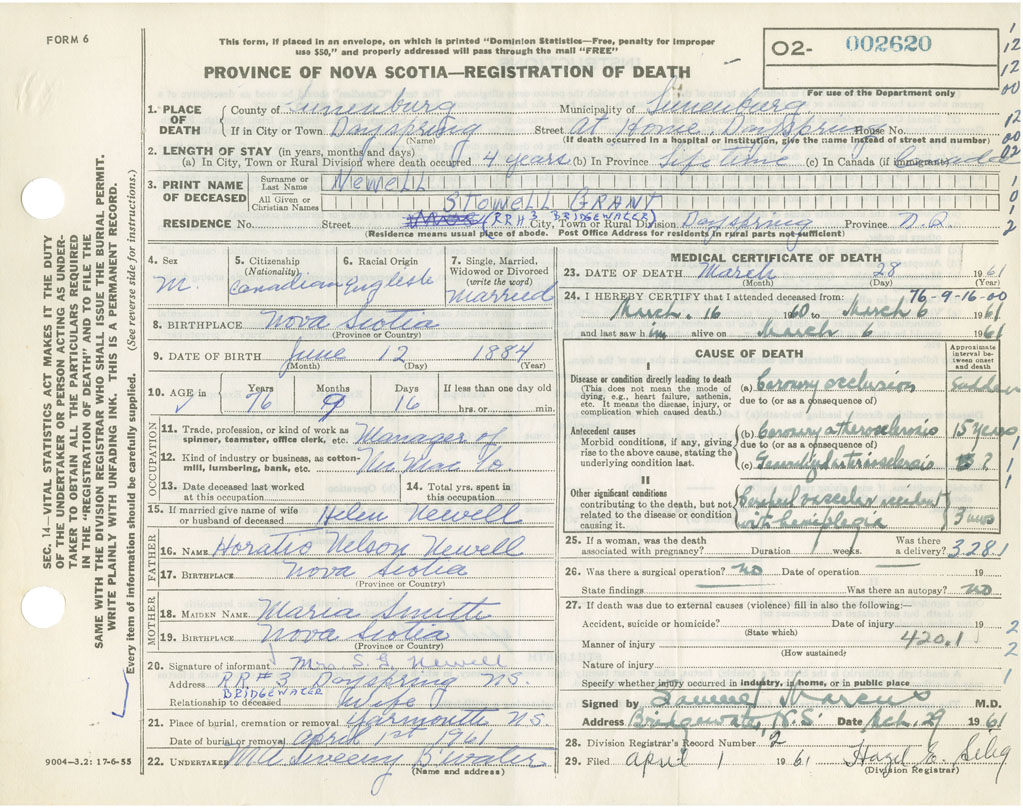 FORM 6
This form, if placed in an envelope, on which is printed "Dominion Statistics—Free, penalty for improper
use $50," and properly addressed will pass through the mail "FREE"
O2- 002620
For use of the Department only
PROVINCE OF NOVA SCOTIA—REGISTRATION OF DEATH
1. PLACE OF DEATH
County of Lunenburg Municipality of Lunenburg
If in City or Town Dayspring Street At Home, Dayspring House No.
(Name) (If death occurred in a hospital or institution, give the name instead of street and number)
2. LENGTH OF STAY (in years, months and days)
(a) In City, Town or Rural Division where death occurred 4 years (b) In Province Life time (c) In Canada (if immigrant)
3. PRINT NAME OF DECEASED
Surname or Last Name NEWELL
All Given or Christian Names STOWELL GRANT
RESIDENCE No. Street (RR#3 BRIDGEWATER) City, Town or Rural Division Dayspring Province
(Residence means usual place of abode. Post Office Address for residents in rural parts not sufficient)
4. Sex M.
5. Citizenship (Nationality) Canadian
6. Racial Origin English
7. Single, Married, Widowed or Divorced (write the word) Married
8. BIRTHPLACE Nova Scotia
(Province or Country)
9. DATE OF BIRTH June 12 1884
(Month) (Day) (Year)
10. AGE in Years 76 Months 9 Days 16 If less than one day old
hrs. or min.
OCCUPATION
11. Trade, profession, or kind of work as spinner, teamster, office clerk, etc. Manager of
12. Kind of industry or business, as cotton-mill, lumbering, bank, etc.
13. Date deceased last worked at this occupation
14. Total yrs. spent in this occupation
15. If married give name of wife or husband of deceased Helen Newell
FATHER
16. NAME Horatio Nelson Newell
17. BIRTHPLACE Nova Scotia
(Province or Country)
MOTHER
18. MAIDEN NAME Maria Smith
19. BIRTHPLACE Nova Scotia
(Province or Country)
20. Signature of informant Mrs. S. G. Newell
Address RR#3 Dayspring NS.
BRIDGEWATER
Relationship to deceased Wife
21. Place of burial, cremation or removal Yarmouth NS.
Date of burial or removal April 1st 1961
22. UNDERTAKER Sweeny B'water
(Name and address)
9004-3.2: 17-6-55
MEDICAL CERTIFICATE OF DEATH
23. DATE OF DEATH March 28 1961
(Month) (Day) (Year)
24. I HEREBY CERTIFY that I attended deceased from: 76-9-16-00
March. 16 1960 to March 6 1961
and last saw him alive on March 6 1961
CAUSE OF DEATH
Approximate interval between onset and death
I
Disease or condition directly leading to death (a) Coronary occlusion Sudden
(This does not mean the mode of dying, e.g., heart failure, asthenia, etc. It means the disease, injury, or complication which caused death.)
due to (or as a consequence of)
Antecedent causes (b) Coronary atherosclerosis 15 years
Morbid conditions, if any, giving rise to the above cause, stating the underlying condition last.
due to (or as a consequence of)
(c) Generalized arteriosclerosis ?
II
Other significant conditions contributing to the death, but not related to the disease or condition causing it.
Cerebral vascular accident
with hemiplegia 3 mos
25. If a woman, was the death associated with pregnancy? Duration weeks. Was there a delivery? 328.1
26. Was there a surgical operation? no Date of operation 19
State findings Was there an autopsy? no
27. If death was due to external causes (violence) fill in also the following:—
Accident, suicide or homicide? Date of injury 19
(State which)
Manner of injury 420.1
(How sustained)
Nature of injury
Specify whether injury occurred in industry, in home, or in public place
Signed by Samuel Marcus M.D.
Address Bridgewater, N.S. Date Mch. 29 1961
28. Division Registrar's Record Number 2
29. Filed April 1 1961 Hazel E.
(Division Registrar)
SEC. 14—VITAL STATISTICS ACT MAKES IT THE DUTY
OF THE UNDERTAKER OR PERSON ACTING AS UNDER-
TAKER TO OBTAIN ALL THE PARTICULARS REQUIRED
IN THE "REGISTRATION OF DEATH" AND TO FILE THE
SAME WITH THE DIVISION REGISTRAR WHO SHALL ISSUE THE BURIAL PERMIT.
WRITE PLAINLY WITH UNFADING INK. THIS IS A PERMANENT RECORD.
Every item of information should be carefully supplied. (See reverse side for instructions.)